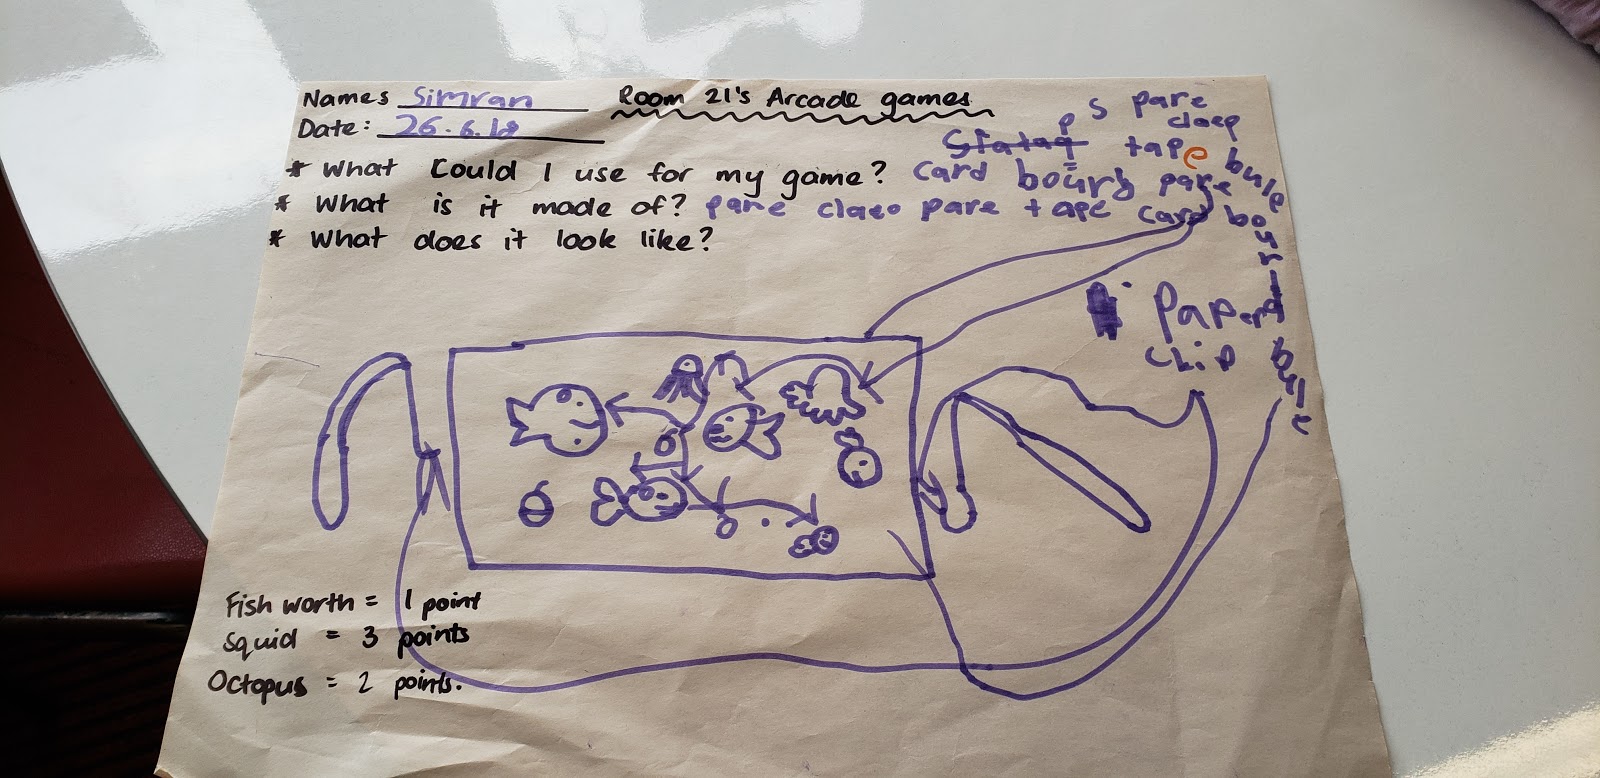 Names Simran Room 21's Arcade games
Date: 26.6.18
p s pare
claep
tape
* What Could I use for my game? card bourd pare
bule
* What is it made of? pane claeo pare tape card
bourd
* What does it look like?
Paper
chip
bule
Fish worth = 1 point
Squid = 3 points
Octopus = 2 points.